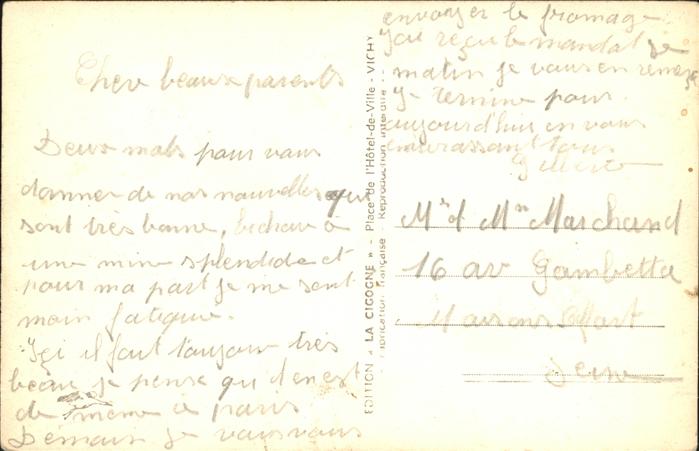 Chere beaux parents
Deux mots pour vous
donner de nos nouvelles qui
sont très bonne, bichou à
une mine splendide et
pour ma part je me sent
moin fatiguée.
Içi il fait toujour très
beau je pense qu'il en est
de même à paris
Demain je vais vous
envoyer le fromage
J'ai reçu le mandat ce
matin je vous en remerçie
Je termine pour
aujourd'hui en vous
embrassant tous
EDITION « LA CIGOGNE » - Place de l'Hôtel-de-Ville - VICHY
Fabrication Française - Reproduction interdite
Mr et Mme Marchand
16 av Gambetta
Maisons Alfort
Seine